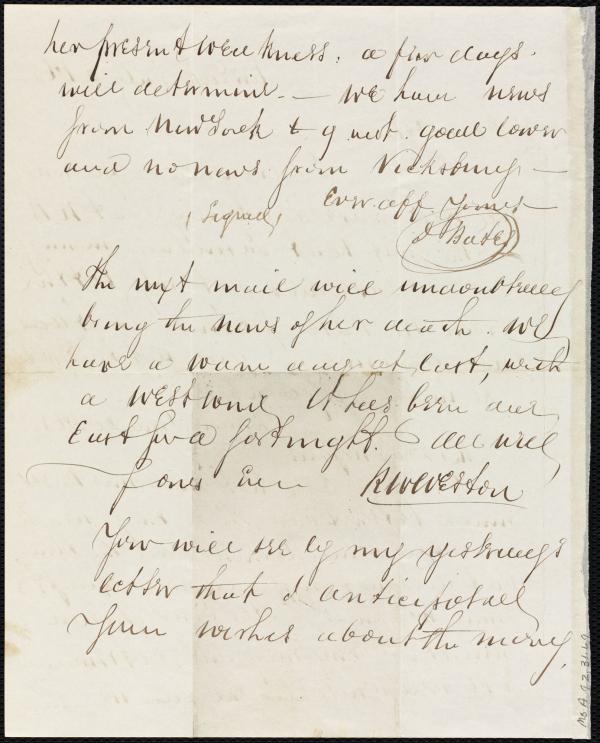 her present weakness. a few days.
will determine. — We have news
from New York to 9 inst. gold lower
and no news from Vicksburg —
Ever aff Yours
(Signed)
J Bates
The next mail will undoubtedly
bring the news of her death. We
have a warm day at last, with
a West wind. It has been due
East for a fortnight. all well,
Yours Ever
R W Weston
You will see by my yesterday's
letter that I anticipated
Your wishes about the money.
Ms.A.9.2.31.49